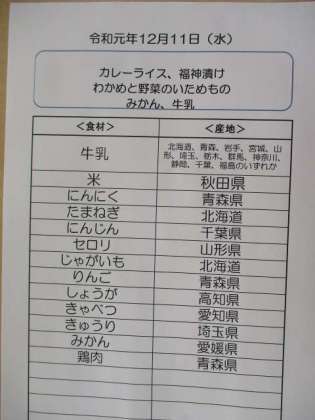 令和元年12月11日（水）
カレーライス、福神漬け
わかめと野菜のいためもの
みかん、牛乳
＜食材＞ ＜産地＞
牛乳 北海道、青森、岩手、宮城、山
形、埼玉、栃木、群馬、神奈川、
静岡、千葉、福島のいずれか
米 秋田県
にんにく 青森県
たまねぎ 北海道
にんじん 千葉県
セロリ 山形県
じゃがいも 北海道
りんご 青森県
しょうが 高知県
きゃべつ 愛知県
きゅうり 埼玉県
みかん 愛媛県
鶏肉 青森県